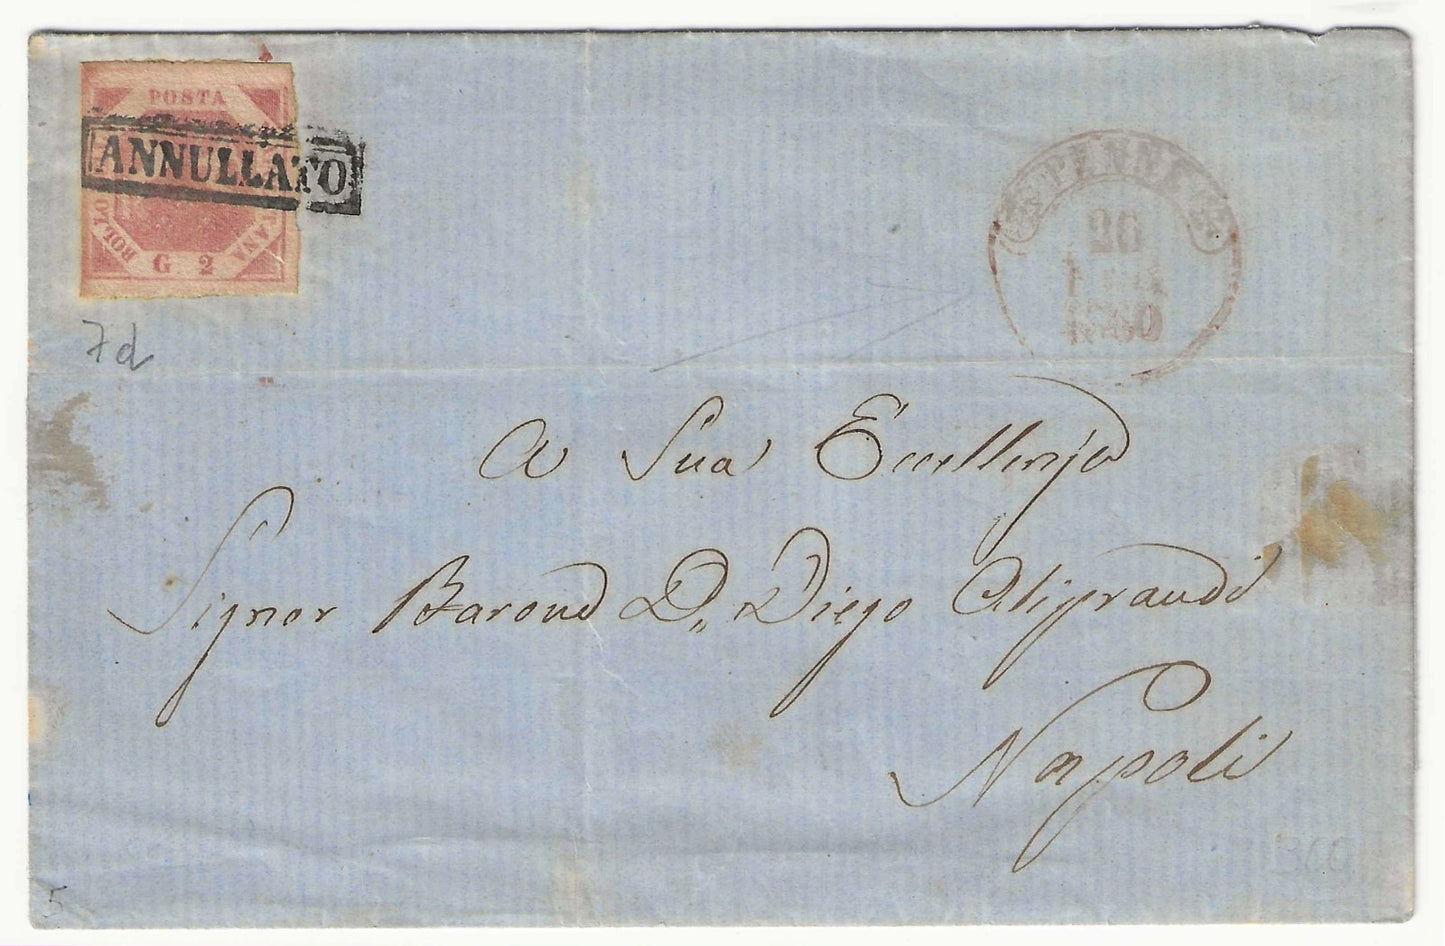 POSTA
ANNULLATO
BOLLO
G 2
PENNE
26
1860
7d
A Sua Eccellenza
Signor Barone D. Diego Aliprandi
Napoli
5